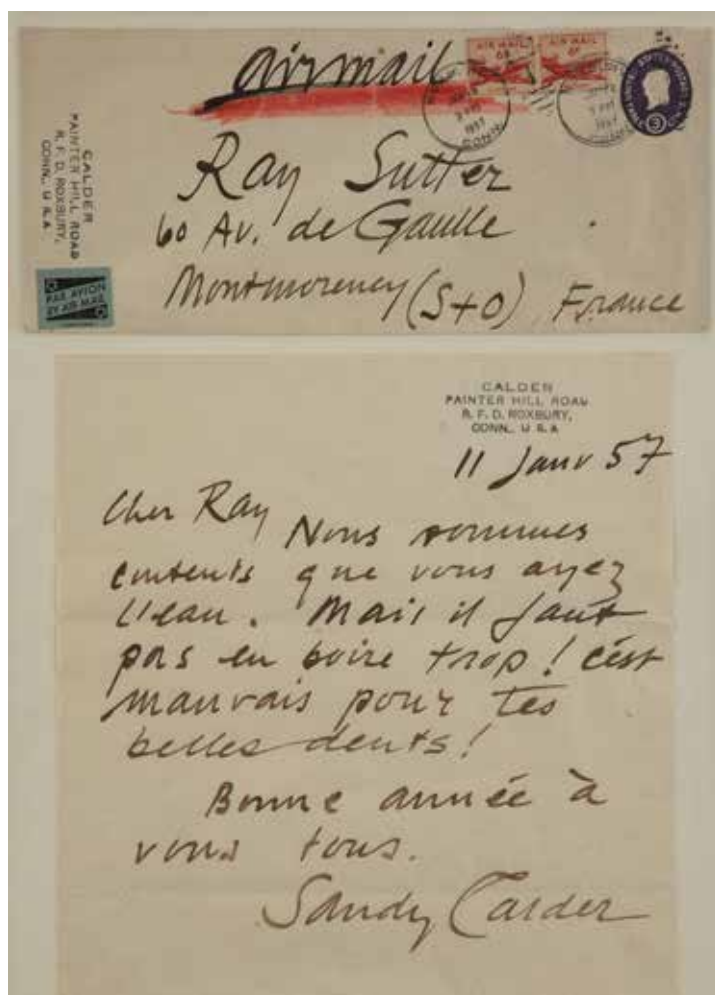 airmail
AIR MAIL
6¢
AIR MAIL
6¢
CALDER
PAINTER HILL ROAD
R. F. D. ROXBURY,
CONN., U S A
PAR AVION
BY AIR MAIL
Ray Sutter
60 Av. de Gaulle
Montmorency (S+O) France
1957
CONN.
3
CALDER
PAINTER HILL ROAD
R. F. D. ROXBURY,
CONN., U S A
11 Janv 57
Cher Ray
Nous sommes
contents que vous ayez
l'eau. Mais il faut
pas en boire trop! c'est
mauvais pour tes
belles dents!
Bonne année à
vous tous.
Sandy Calder